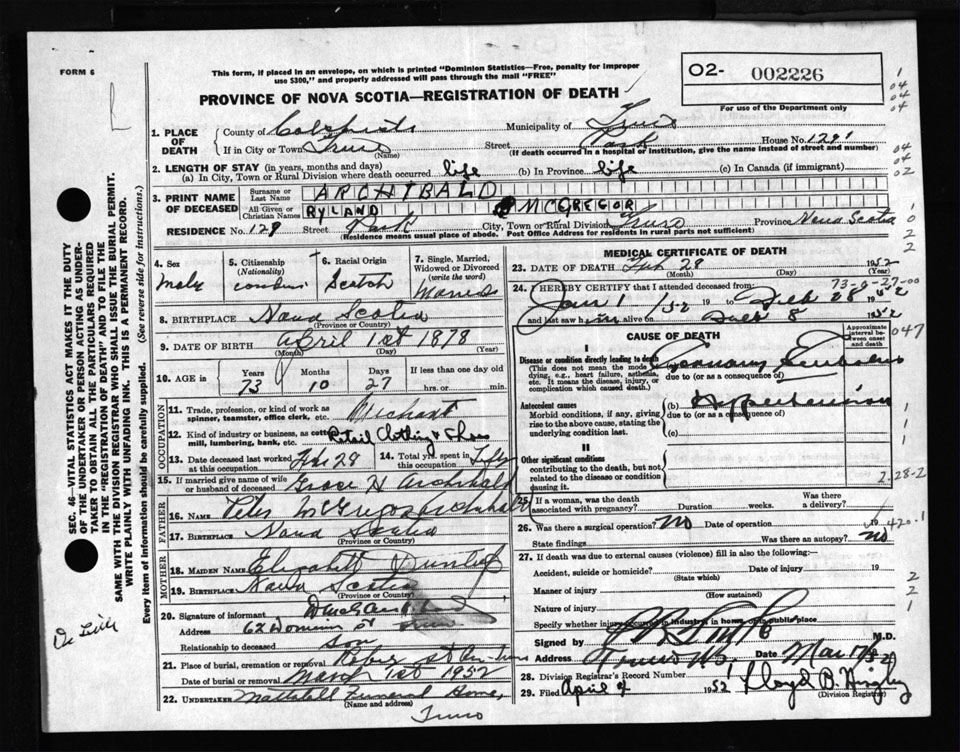 FORM 6
This form, if placed in an envelope, on which is printed "Dominion Statistics—Free, penalty for improper
use $300," and properly addressed will pass through the mail "FREE"
O2- 002226
For use of the Department only
PROVINCE OF NOVA SCOTIA—REGISTRATION OF DEATH
1. PLACE OF DEATH
County of Colchester Municipality of Truro
If in City or Town Truro (Name) Street Park House No. 129
(If death occurred in a hospital or institution, give the name instead of street and number)
2. LENGTH OF STAY (in years, months and days)
(a) In City, Town or Rural Division where death occurred life (b) In Province life (c) In Canada (if immigrant)
3. PRINT NAME OF DECEASED
Surname or Last Name ARCHIBALD
All Given or Christian Names RYLAND MCGREGOR
RESIDENCE No. 129 Street Park City, Town or Rural Division Truro Province Nova Scotia
(Residence means usual place of abode. Post Office Address for residents in rural parts not sufficient)
4. Sex Male
5. Citizenship (Nationality)
6. Racial Origin Scotch
7. Single, Married, Widowed or Divorced (write the word) Married
8. BIRTHPLACE Nova Scotia
(Province or Country)
9. DATE OF BIRTH April 1st 1878
(Month) (Day) (Year)
10. AGE in Years 73 Months 10 Days 27 If less than one day old hrs. or min.
OCCUPATION
11. Trade, profession, or kind of work as spinner, teamster, office clerk, etc. Merchant
12. Kind of industry or business, as cotton mill, lumbering, bank, etc. Retail Clothing & Shoes
13. Date deceased last worked at this occupation Feb 28
14. Total yrs. spent in this occupation
15. If married give name of wife or husband of deceased Grace H Archibald
FATHER
16. NAME Peter McGregor Archibald
17. BIRTHPLACE Nova Scotia
(Province or Country)
MOTHER
18. MAIDEN NAME Elizabeth Dunlap
19. BIRTHPLACE Nova Scotia
(Province or Country)
20. Signature of informant
Address 62 Dominion St Truro
Relationship to deceased Son
21. Place of burial, cremation or removal Robie St Truro
Date of burial or removal March 1st 1952
22. UNDERTAKER Mattatall Funeral Home,
(Name and address)
Truro
MEDICAL CERTIFICATE OF DEATH
23. DATE OF DEATH Feb 28 1952
(Month) (Day) (Year)
73-0-27-00
24. I HEREBY CERTIFY that I attended deceased from:
Jan 1 1952 19 to Feb 28 1952
and last saw him alive on Feb 8 1952
CAUSE OF DEATH
Approximate interval between onset and death
047
I
Disease or condition directly leading to death
(This does not mean the mode of dying, e.g., heart failure, asthenia, etc. It means the disease, injury, or complication which caused death.)
Coronary Embolus
due to (or as a consequence of)
Antecedent causes
Morbid conditions, if any, giving rise to the above cause, stating the underlying condition last.
(b) Hypertension
due to (or as a consequence of)
(c)
II
Other significant conditions
contributing to the death, but not related to the disease or condition causing it.
2-28-2
25. If a woman, was the death associated with pregnancy? Duration weeks. Was there a delivery?
26. Was there a surgical operation? No Date of operation 19
420.1
State findings Was there an autopsy? No
27. If death was due to external causes (violence) fill in also the following:—
Accident, suicide or homicide? Date of injury 19
(State which)
Manner of injury
(How sustained)
Nature of injury
Specify whether injury occurred in industry in home, or in public place
Signed by M.D.
Address Truro NS Date Mar 1 1952
28. Division Registrar's Record Number
29. Filed April 9 1952 Lloyd B. Hingley
(Division Registrar)
SEC. 46—VITAL STATISTICS ACT MAKES IT THE DUTY
OF THE UNDERTAKER OR PERSON ACTING AS UNDER-
TAKER TO OBTAIN ALL THE PARTICULARS REQUIRED
IN THE "REGISTRATION OF DEATH" AND TO FILE THE
SAME WITH THE DIVISION REGISTRAR WHO SHALL ISSUE THE BURIAL PERMIT.
WRITE PLAINLY WITH UNFADING INK. THIS IS A PERMANENT RECORD.
Every item of information should be carefully supplied. (See reverse side for instructions.)